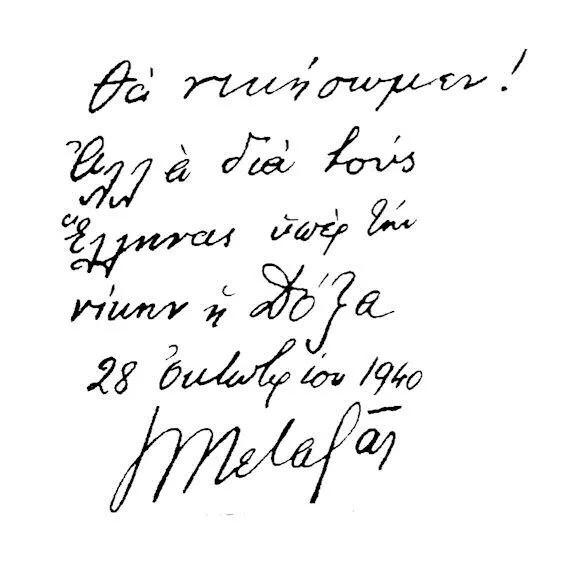 Θὰ νικήσωμεν!
Ἀλλὰ διὰ τούς
Ἕλληνας ὑπὲρ τήν
νίκην ἡ Δόξα
28 Ὀκτωβρίου 1940
Ι Μεταξᾶς